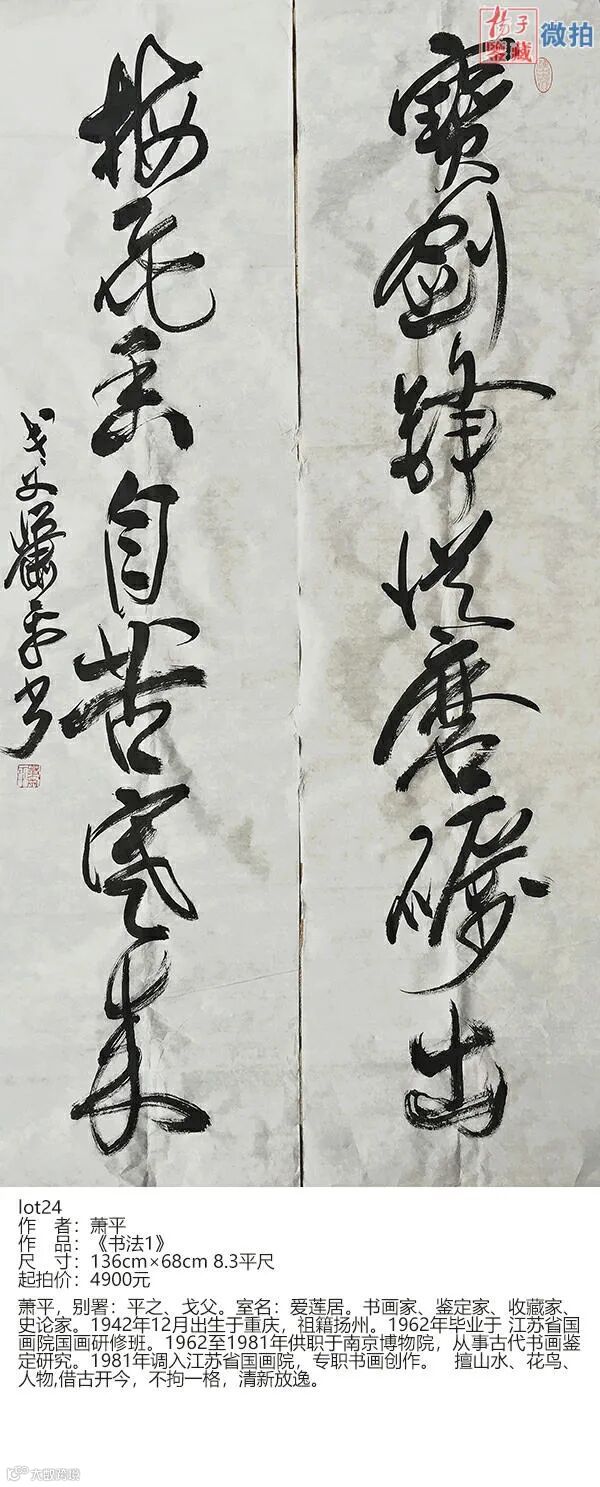 揚子
鑒藏
微拍
寶劍鋒從磨礪出
梅花香自苦寒来
戈父蕭平书
lot24
作 者：萧平
作 品：《书法1》
尺 寸：136cm×68cm 8.3平尺
起拍价：4900元
萧平，别署：平之、戈父。室名：爱莲居。书画家、鉴定家、收藏家、
史论家。1942年12月出生于重庆，祖籍扬州。1962年毕业于 江苏省国
画院国画研修班。1962至1981年供职于南京博物院，从事古代书画鉴
定研究。1981年调入江苏省国画院，专职书画创作。 擅山水、花鸟、
人物,借古开今，不拘一格，清新放逸。
大数跨境